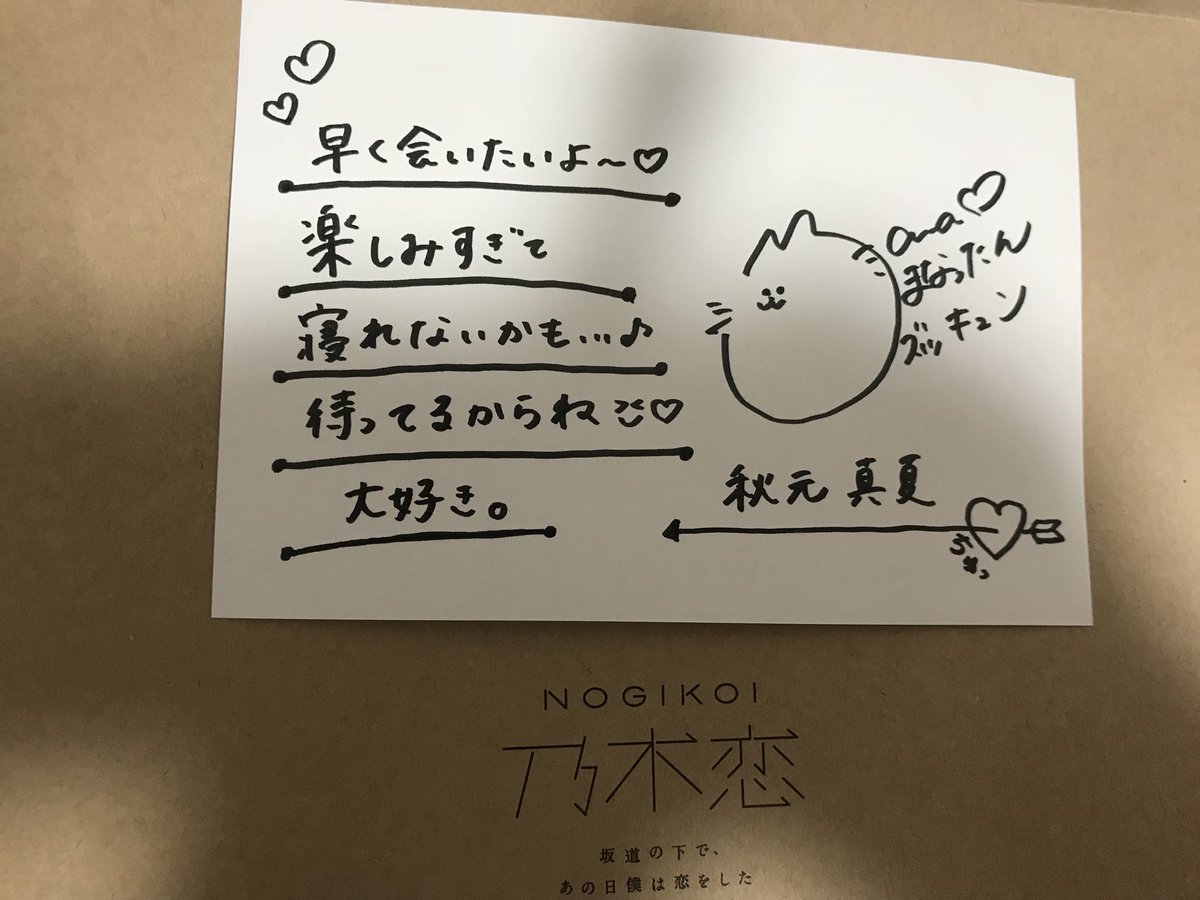 早く会いたいよ〜♡
楽しみすぎて
寝れないかも…♪
待ってるからね♡
大好き。
ama♡
まなったん
ズッキュン
秋元 真夏
ちゅっ
NOGIKOI
乃木恋
坂道の下で、
あの日僕は恋をした